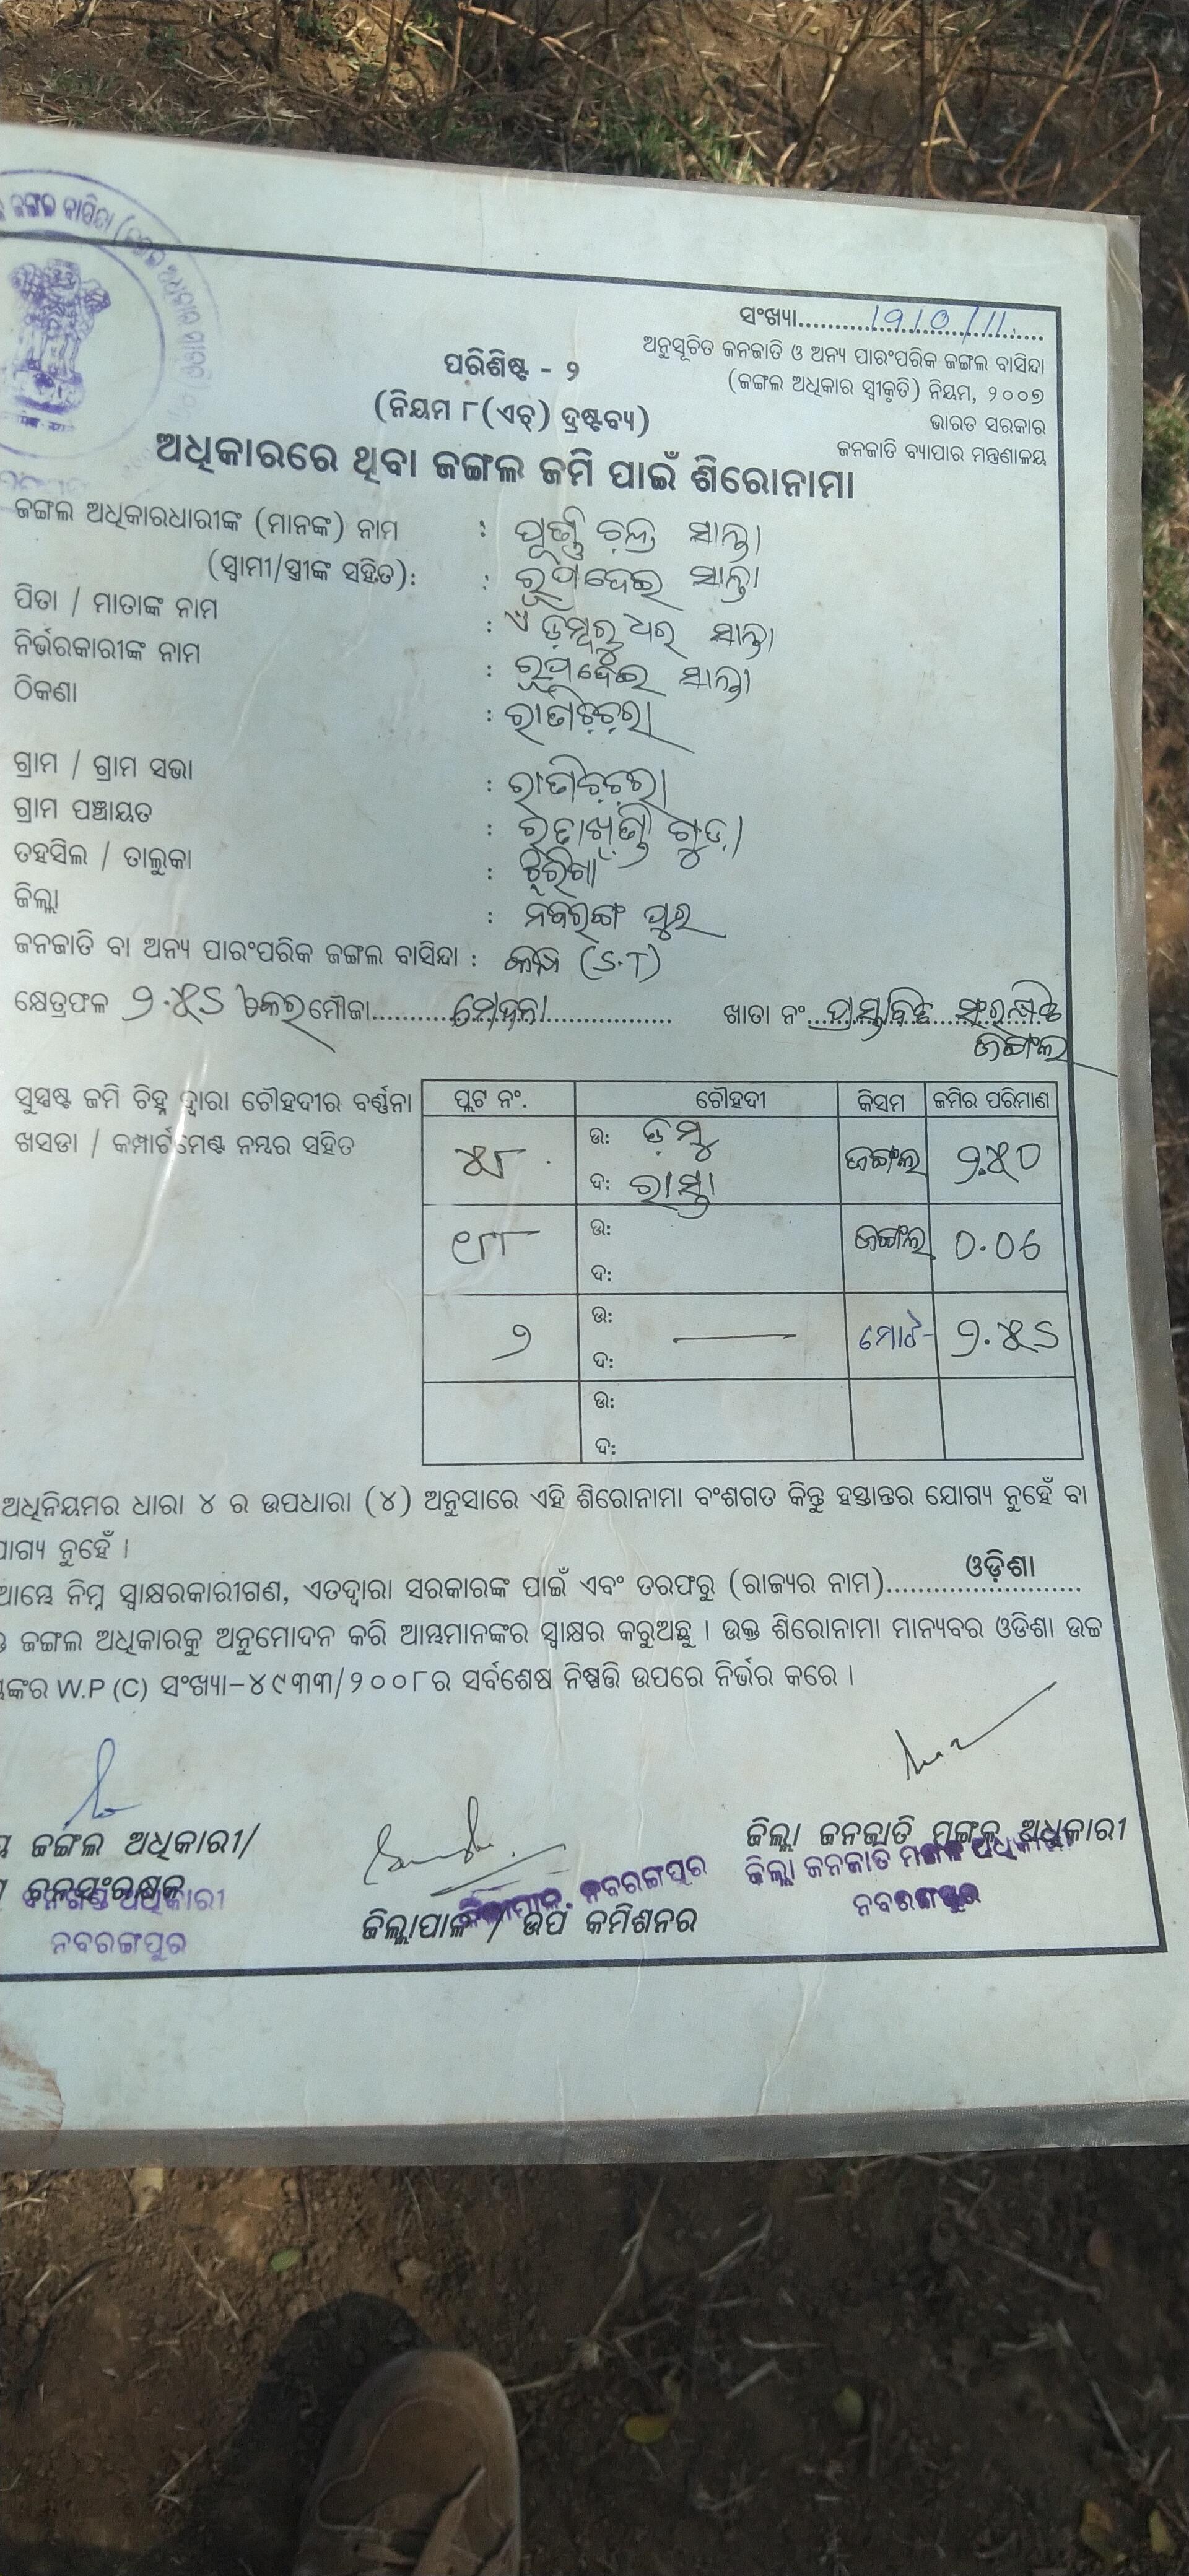 ଜଙ୍ଗଲ ବାସିନ୍ଦା
ସଂଖ୍ୟା.......1910/11.......
ଅନୁସୂଚିତ ଜନଜାତି ଓ ଅନ୍ୟ ପାରଂପରିକ ଜଙ୍ଗଲ ବାସିନ୍ଦା
(ଜଙ୍ଗଲ ଅଧିକାର ସ୍ୱୀକୃତି) ନିୟମ, ୨୦୦୭
ଭାରତ ସରକାର
ଜନଜାତି ବ୍ୟାପାର ମନ୍ତ୍ରଣାଳୟ
ପରିଶିଷ୍ଟ - ୨
(ନିୟମ ୮(ଏଚ୍) ଦ୍ରଷ୍ଟବ୍ୟ)
ଅଧିକାରରେ ଥିବା ଜଙ୍ଗଲ ଜମି ପାଇଁ ଶିରୋନାମା
ଜଙ୍ଗଲ ଅଧିକାରଧାରୀଙ୍କ (ମାନଙ୍କ) ନାମ : ପୂର୍ଣ୍ଣ ଚନ୍ଦ୍ର ସାନ୍ତା
(ସ୍ୱାମୀ/ସ୍ତ୍ରୀଙ୍କ ସହିତ): : ରୂପଦେଇ ସାନ୍ତା
ପିତା / ମାତାଙ୍କ ନାମ : ଡ଼ମ୍ବରୁଧର ସାନ୍ତା
ନିର୍ଭରକାରୀଙ୍କ ନାମ : ରୂପଦେଇ ସାନ୍ତା
ଠିକଣା :
ଗ୍ରାମ / ଗ୍ରାମ ସଭା :
ଗ୍ରାମ ପଞ୍ଚାୟତ : ଗୁଡ଼ା
ତହସିଲ / ତାଲୁକା :
ଜିଲ୍ଲା : ନବରଙ୍ଗ ପୁର
ଜନଜାତି ବା ଅନ୍ୟ ପାରଂପରିକ ଜଙ୍ଗଲ ବାସିନ୍ଦା : (S.T)
କ୍ଷେତ୍ରଫଳ ୨.୫୬ ଏକର ମୌଜା.................... ଖାତା ନଂ. ପ୍ରସ୍ତାବିତ ସଂରକ୍ଷିତ
ଜଙ୍ଗଲ
ସୁସ୍ପଷ୍ଟ ଜମି ଚିହ୍ନ ଦ୍ୱାରା ଚୌହଦୀର ବର୍ଣ୍ଣନା
ଖସଡା / କମ୍ପାର୍ଟମେଣ୍ଟ ନମ୍ବର ସହିତ
ପ୍ଲଟ ନଂ. ଚୌହଦୀ କିସମ ଜମିର ପରିମାଣ
୫୮ ଉ: ଡ଼ମ୍ବୁ ଜଙ୍ଗଲ ୨.୫୦
ଦ: ରାସ୍ତା
୧୮୮ ଉ: ଜଙ୍ଗଲ 0.06
ଦ:
୨ ଉ: ମୋଟ- ୨.୫୬
ଦ:
ଉ:
ଦ:
ଅଧିନିୟମର ଧାରା ୪ ର ଉପଧାରା (୪) ଅନୁସାରେ ଏହି ଶିରୋନାମା ବଂଶଗତ କିନ୍ତୁ ହସ୍ତାନ୍ତର ଯୋଗ୍ୟ ନୁହେଁ ବା
ନୁହେଁ ।
ଆମ୍ଭେ ନିମ୍ନ ସ୍ୱାକ୍ଷରକାରୀଗଣ, ଏତଦ୍ୱାରା ସରକାରଙ୍କ ପାଇଁ ଏବଂ ତରଫରୁ (ରାଜ୍ୟର ନାମ)....... ଓଡ଼ିଶା .......
ଜଙ୍ଗଲ ଅଧିକାରକୁ ଅନୁମୋଦନ କରି ଆମ୍ଭମାନଙ୍କର ସ୍ୱାକ୍ଷର କରୁଅଛୁ । ଉକ୍ତ ଶିରୋନାମା ମାନ୍ୟବର ଓଡିଶା ଉଚ୍ଚ
W.P (C) ସଂଖ୍ୟା-୪୯୩୩/୨୦୦୮ର ସର୍ବଶେଷ ନିଷ୍ପତ୍ତି ଉପରେ ନିର୍ଭର କରେ ।
ଜଙ୍ଗଲ ଅଧିକାରୀ/
ବନସଂରକ୍ଷକ
ବନଖଣ୍ଡ ଅଧିକାରୀ
ନବରଙ୍ଗପୁର
ଜିଲ୍ଲାପାଳ, ନବରଙ୍ଗପୁର
ଜିଲ୍ଲାପାଳ / ଉପ କମିଶନର
ଜିଲ୍ଲା ଜନଜାତି ମଙ୍ଗଳ ଅଧିକାରୀ
ଜିଲ୍ଲା ଜନଜାତି ମଙ୍ଗଳ ଅଧିକାରୀ
ନବରଙ୍ଗପୁର